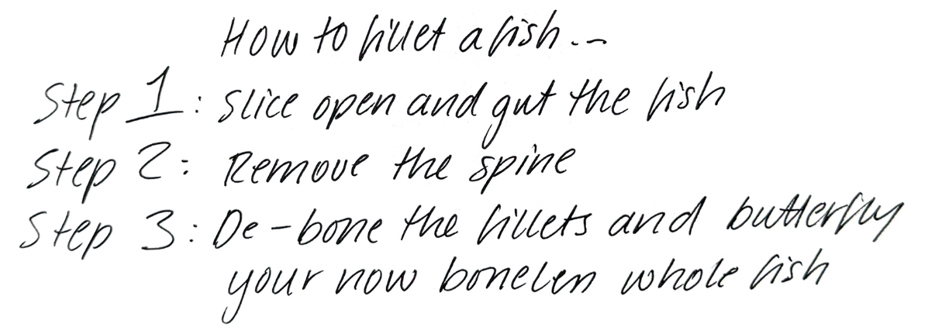 How to fillet a fish...
Step 1: Slice open and gut the fish
Step 2: Remove the spine
Step 3: De-bone the fillets and butterfly
your now boneless whole fish